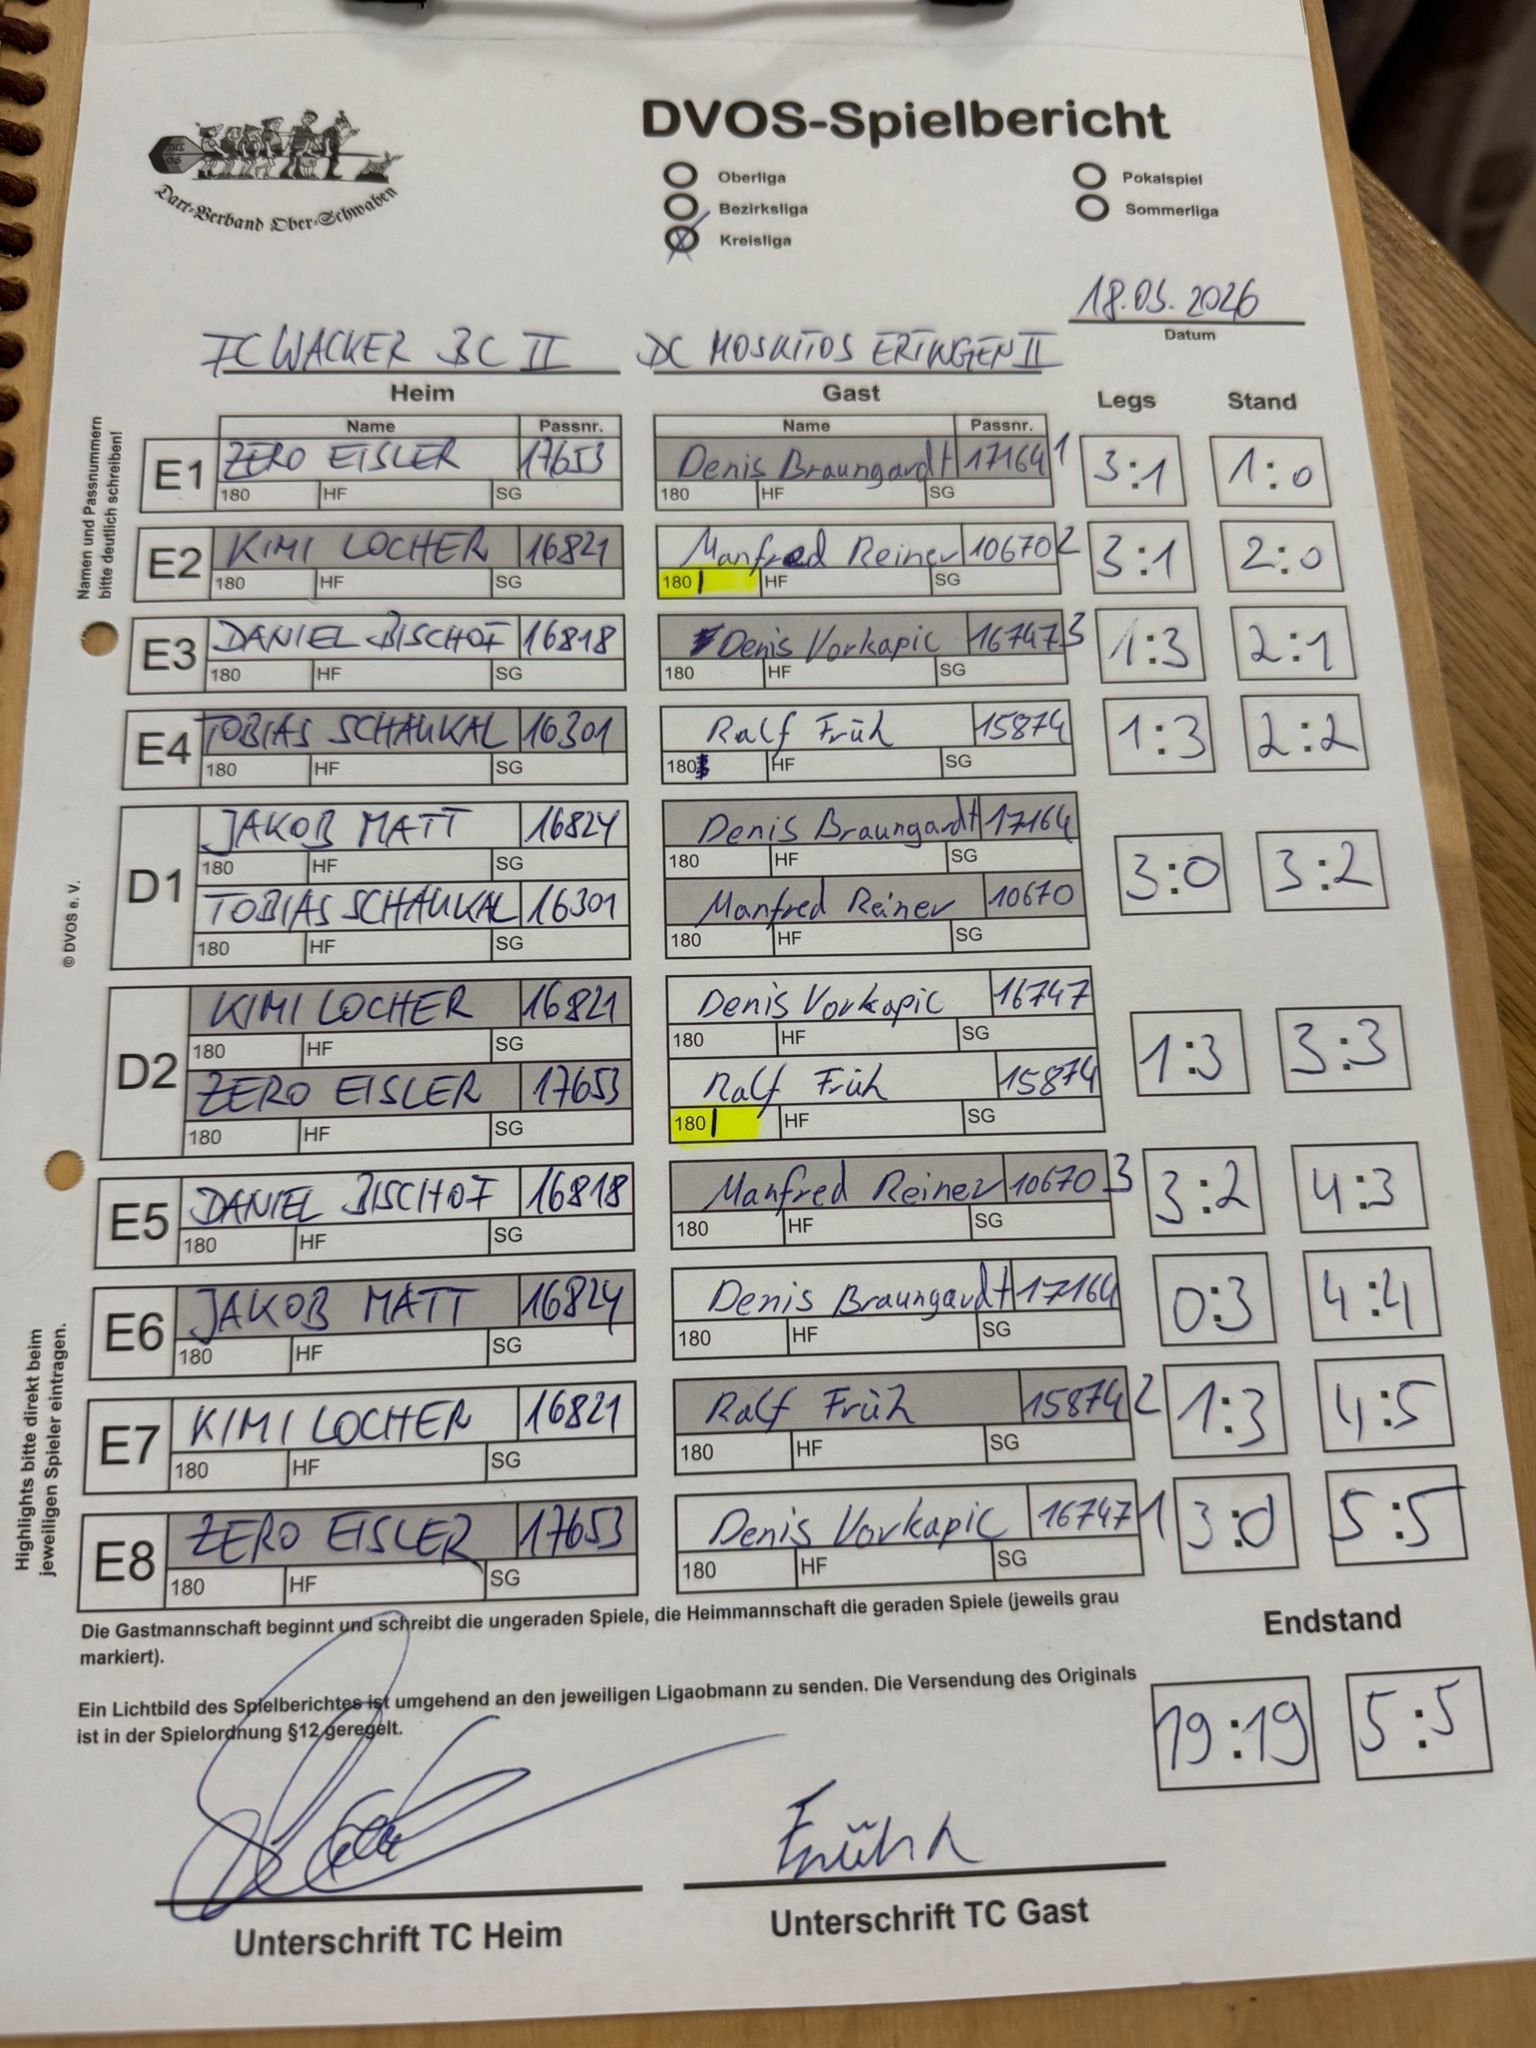 DVOS-Spielbericht
Dart-Verband Ober-Schwaben
Oberliga
Bezirksliga
Kreisliga
Pokalspiel
Sommerliga
18.05.2026
Datum
FC WACKER BC II DC MOSKITOS ERTINGEN II
Heim Gast Legs Stand
Name Passnr. Name Passnr.
E1 ZERO EISLER 17653 Denis Braungardt 17164 1 3:1 1:0
180 HF SG 180 HF SG
E2 KIMI LOCHER 16821 Manfred Reiner 10670 2 3:1 2:0
180 HF SG 180 | HF SG
E3 DANIEL BISCHOF 16818 Denis Vorkapic 16747 3 1:3 2:1
180 HF SG 180 HF SG
E4 TOBIAS SCHAUKAL 16301 Ralf Früh 15874 1:3 2:2
180 HF SG 180 HF SG
D1 JAKOB MATT 16824 Denis Braungardt 17164 3:0 3:2
180 HF SG 180 HF SG
TOBIAS SCHAUKAL 16301 Manfred Reiner 10670
180 HF SG 180 HF SG
D2 KIMI LOCHER 16821 Denis Vorkapic 16747 1:3 3:3
180 HF SG 180 HF SG
ZERO EISLER 17653 Ralf Früh 15874
180 HF SG 180 | HF SG
E5 DANIEL BISCHOF 16818 Manfred Reiner 10670 3 3:2 4:3
180 HF SG 180 HF SG
E6 JAKOB MATT 16824 Denis Braungardt 17164 0:3 4:4
180 HF SG 180 HF SG
E7 KIMI LOCHER 16821 Ralf Früh 15874 2 1:3 4:5
180 HF SG 180 HF SG
E8 ZERO EISLER 17653 Denis Vorkapic 16747 1 3:0 5:5
180 HF SG 180 HF SG
Namen und Passnummern
bitte deutlich schreiben!
© DVOS e. V.
Highlights bitte direkt beim
jeweiligen Spieler eintragen.
Die Gastmannschaft beginnt und schreibt die ungeraden Spiele, die Heimmannschaft die geraden Spiele (jeweils grau
markiert).
Endstand
Ein Lichtbild des Spielberichtes ist umgehend an den jeweiligen Ligaobmann zu senden. Die Versendung des Originals
ist in der Spielordnung §12 geregelt.
19:19 5:5
Unterschrift TC Heim Unterschrift TC Gast